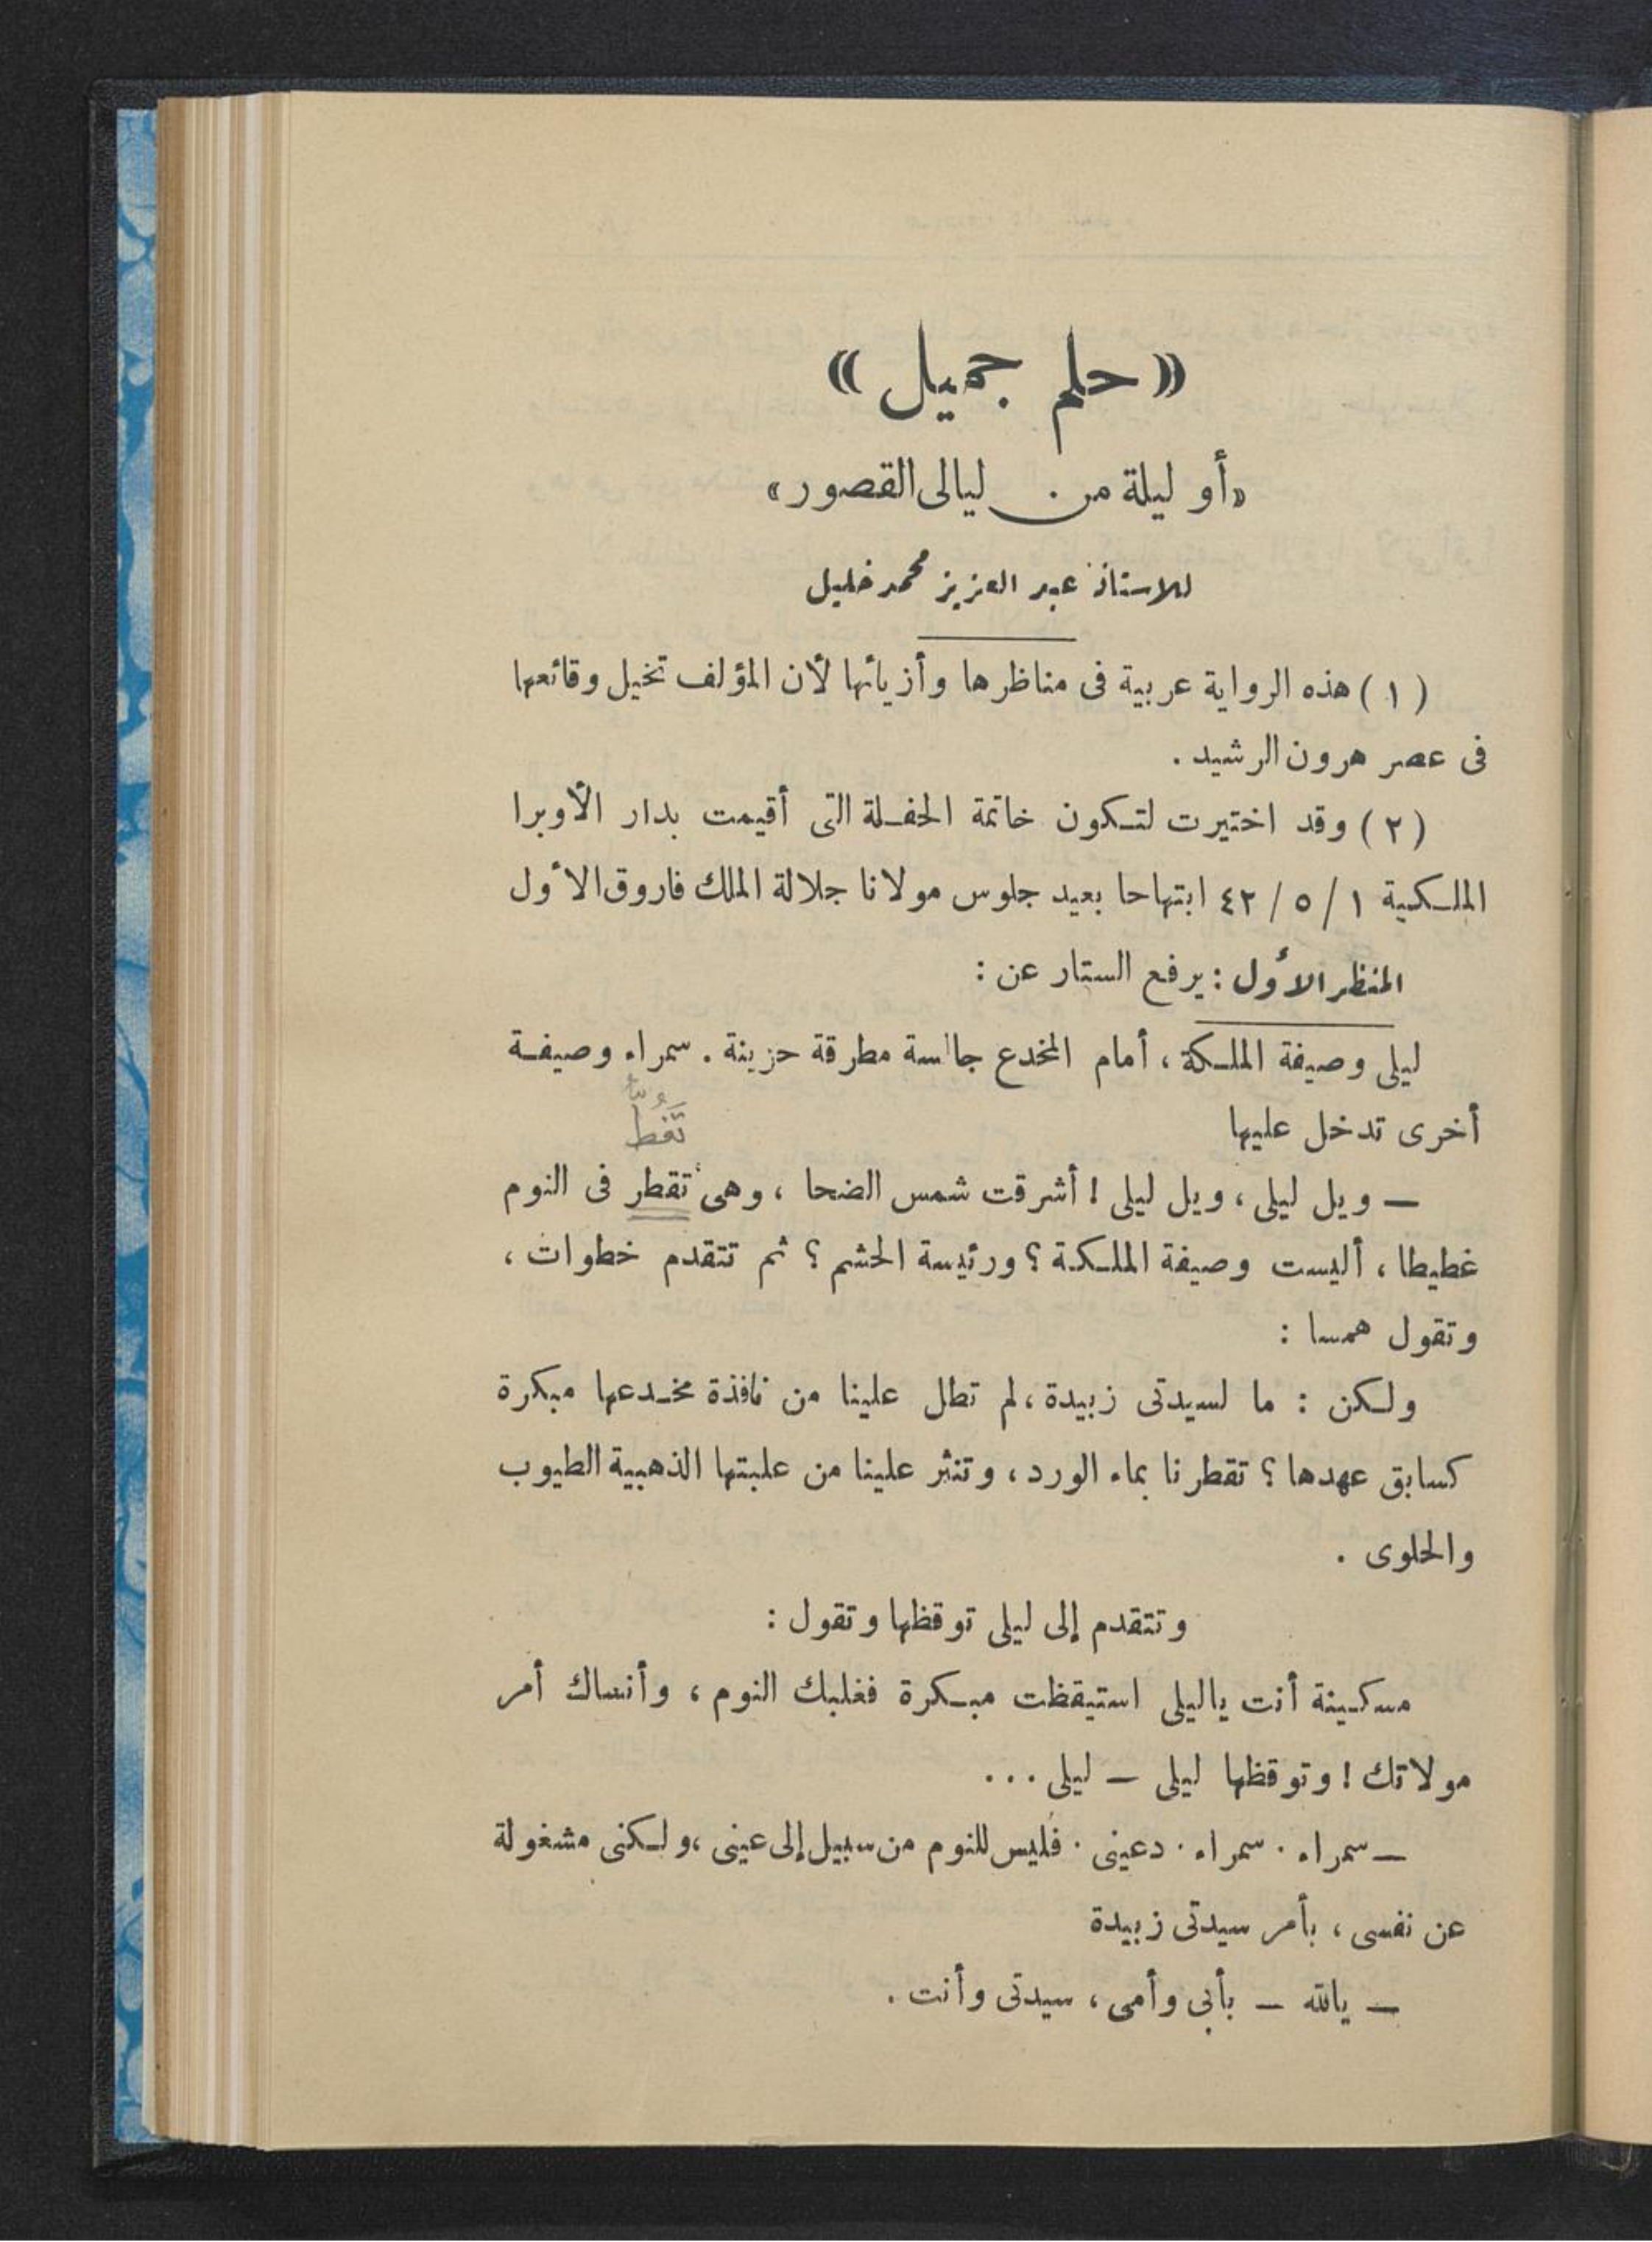 « حلم جميل »
« أو ليلة من ليالى القصور »
للاستاذ عبد العزيز محمد خليل
( ١ ) هذه الرواية عربية فى مناظرها وأزيائها لأن المؤلف تخيل وقائعها
فى عصر هرون الرشيد .
( ٢ ) وقد اختيرت لتكون خاتمة الحفلة التى أقيمت بدار الأوبرا
الملكية ١ / ٥ / ٤٢ ابتهاحا بعيد جلوس مولانا جلالة الملك فاروق الأول
المنظر الأول : يرفع الستار عن :
ليلى وصيفة الملكة ، أمام المخدع جالسة مطرقة حزينة . سمراء وصيفة
أخرى تدخل عليها
— ويل ليلى ، ويل ليلى ! أشرقت شمس الضحا ، وهى تقطر فى النوم
غطيطا ، أليست وصيفة الملكة ؟ ورئيسة الحشم ؟ ثم تتقدم خطوات ،
وتقول همسا :
ولكن : ما لسيدتى زبيدة ، لم تطل علينا من نافذة مخدعها مبكرة
كسابق عهدها ؟ تقطرنا بماء الورد ، وتنثر علينا من علبتها الذهبية الطيوب
والحلوى .
وتتقدم إلى ليلى توقظها وتقول :
مسكينة أنت ياليلى استيقظت مبكرة فغلبك النوم ، وأنساك أمر
مولاتك ! وتوقظها ليلى — ليلى ...
— سمراء . سمراء . دعينى . فليس للنوم من سبيل إلى عينى ، ولكنى مشغولة
عن نفسى ، بأمر سيدتى زبيدة
— يالله — بأبى وأمى ، سيدتى وأنت .